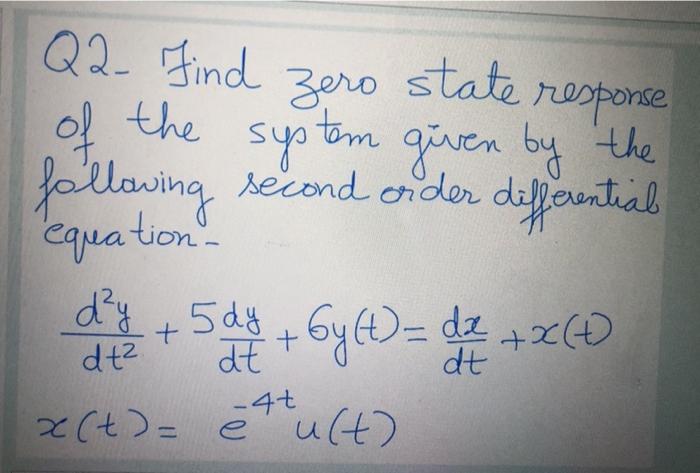 Q2- Find zero state response
of the system given by the
following second order differential
equation-
d²y/dt² + 5dy/dt + 6y(t) = dx/dt + x(t)
x(t) = e^-4t u(t)